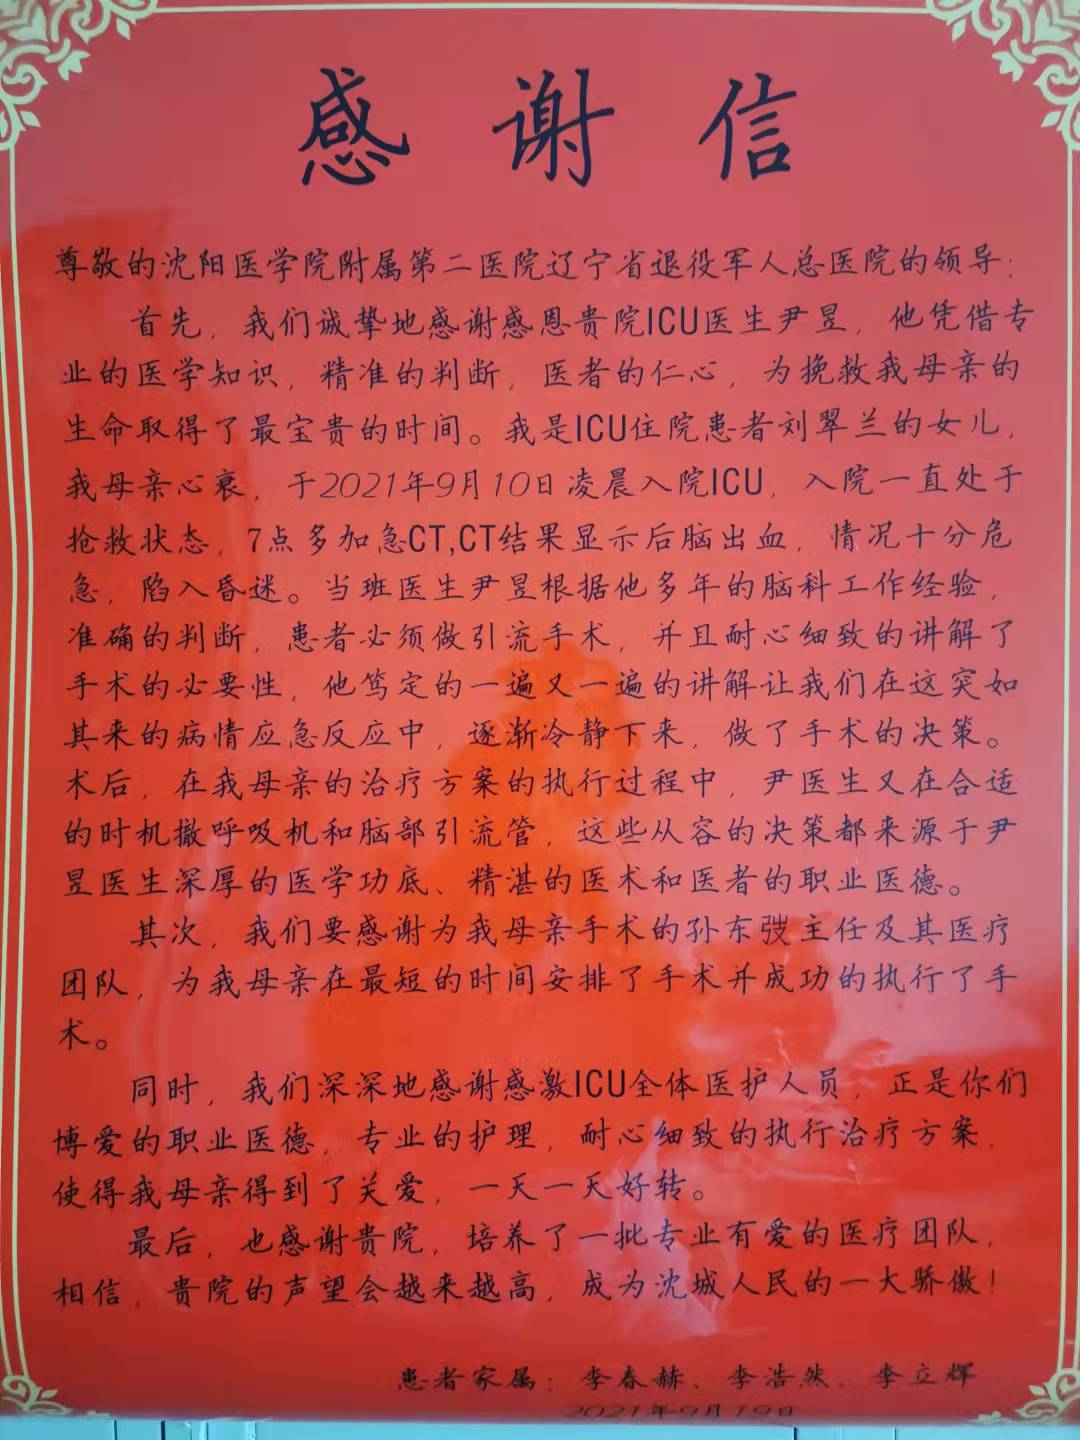 感谢信
尊敬的沈阳医学院附属第二医院辽宁省退役军人总医院的领导：
首先，我们诚挚地感谢感恩贵院ICU医生尹昱，他凭借专
业的医学知识，精准的判断，医者的仁心，为挽救我母亲的
生命取得了最宝贵的时间。我是ICU住院患者刘翠兰的女儿，
我母亲心衰，于2021年9月10日凌晨入院ICU，入院一直处于
抢救状态，7点多加急CT,CT结果显示后脑出血，情况十分危
急，陷入昏迷。当班医生尹昱根据他多年的脑科工作经验，
准确的判断，患者必须做引流手术，并且耐心细致的讲解了
手术的必要性，他笃定的一遍又一遍的讲解让我们在这突如
其来的病情应急反应中，逐渐冷静下来，做了手术的决策。
术后，在我母亲的治疗方案的执行过程中，尹医生又在合适
的时机撤呼吸机和脑部引流管，这些从容的决策都来源于尹
昱医生深厚的医学功底、精湛的医术和医者的职业医德。
其次，我们要感谢为我母亲手术的孙东弢主任及其医疗
团队，为我母亲在最短的时间安排了手术并成功的执行了手
术。
同时，我们深深地感谢感激ICU全体医护人员，正是你们
博爱的职业医德，专业的护理，耐心细致的执行治疗方案，
使得我母亲得到了关爱，一天一天好转。
最后，也感谢贵院，培养了一批专业有爱的医疗团队，
相信，贵院的声望会越来越高，成为沈城人民的一大骄傲！
患者家属：李春赫、李浩然、李立辉
2021年9月19日